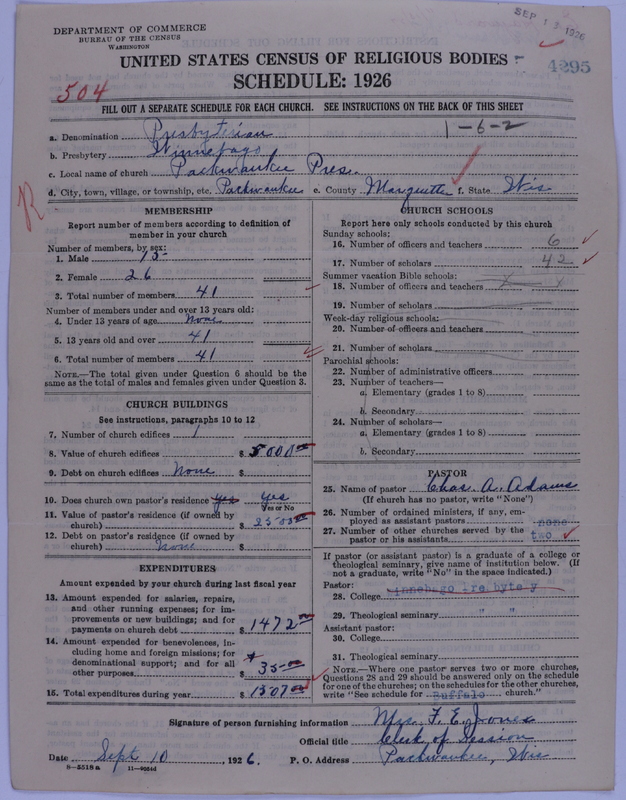 DEPARTMENT OF COMMERCE
BUREAU OF THE CENSUS
WASHINGTON
SEP 13 1926
UNITED STATES CENSUS OF RELIGIOUS BODIES
4295
SCHEDULE: 1926
504
FILL OUT A SEPARATE SCHEDULE FOR EACH CHURCH. SEE INSTRUCTIONS ON THE BACK OF THIS SHEET
a. Denomination Presbyterian 1-6-2
b. Presbytery Winnebago
c. Local name of church Packwaukee Pres.
d. City, town, village, or township, etc. Packwaukee e. County Marquette f. State Wis
R
MEMBERSHIP
Report number of members according to definition of
member in your church
Number of members, by sex:
1. Male 15
2. Female 26
3. Total number of members 41
Number of members under and over 13 years old:
4. Under 13 years of age None
5. 13 years old and over 41
6. Total number of members 41
NOTE.—The total given under Question 6 should be the
same as the total of males and females given under Question 3.
CHURCH BUILDINGS
See instructions, paragraphs 10 to 12
7. Number of church edifices 1
8. Value of church edifices $ 5000.00
9. Debt on church edifices None $
10. Does church own pastor's residence yes yes
Yes or No
11. Value of pastor's residence (if owned by
church) $ 2500.00
12. Debt on pastor's residence (if owned by
church) None $
EXPENDITURES
Amount expended by your church during last fiscal year
13. Amount expended for salaries, repairs,
and other running expenses; for im-
provements or new buildings; and for
payments on church debt $ 1472.00
14. Amount expended for benevolences, in-
cluding home and foreign missions; for
denominational support; and for all
other purposes $ 35.00
15. Total expenditures during year $ 1507.00
CHURCH SCHOOLS
Report here only schools conducted by this church
Sunday schools:
16. Number of officers and teachers 6
17. Number of scholars 42
Summer vacation Bible schools:
18. Number of officers and teachers x x
19. Number of scholars
Week-day religious schools:
20. Number of officers and teachers
21. Number of scholars
Parochial schools:
22. Number of administrative officers
23. Number of teachers—
a. Elementary (grades 1 to 8)
b. Secondary
24. Number of scholars—
a. Elementary (grades 1 to 8)
b. Secondary
PASTOR
25. Name of pastor Chas. A. Adams
(If church has no pastor, write "None")
26. Number of ordained ministers, if any, em-
ployed as assistant pastors none
27. Number of other churches served by the
pastor or his assistants two
If pastor (or assistant pastor) is a graduate of a college or
theological seminary, give name of institution below. (If
not a graduate, write "No" in the space indicated.)
Pastor:
28. College Winnebago Presbytery
29. Theological seminary " "
Assistant pastor:
30. College
31. Theological seminary
NOTE.—Where one pastor serves two or more churches,
Questions 28 and 29 should be answered only on the schedule
for one of the churches; on the schedules for the other churches,
write "See schedule for Buffalo church."
Signature of person furnishing information Mrs. F. E. Jones
Official title Clerk of Session
Date Sept 10, 1926. P. O. Address Packwaukee, Wis
8—5518a 11—9064d